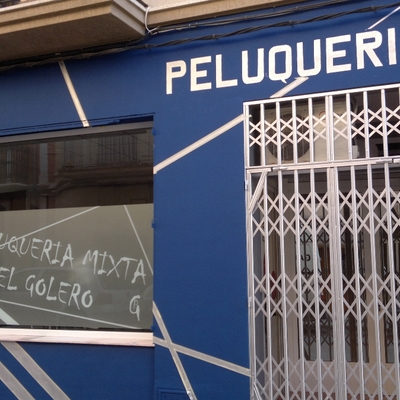 PELUQUERI
UQUERIA MIXTA
EL GOLERO G